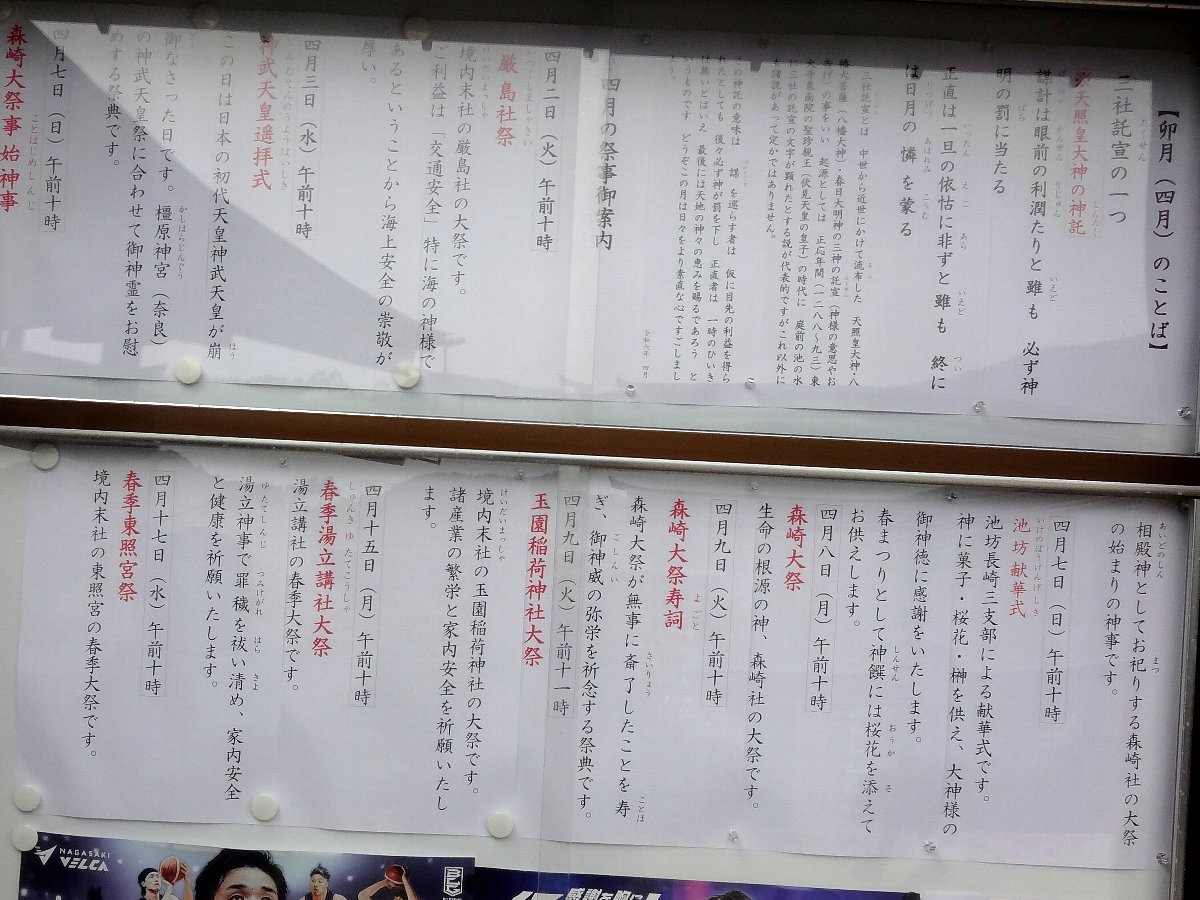 【卯月（四月）のことば】
三社託宣の一つ
※天照皇大神の神託
謀計は眼前の利潤たりと雖も　必ず神
明の罰に当たる
正直は一旦の依怙に非ずと雖も　終に
は日月の憐を蒙る
三社託宣とは　中世から近世にかけて流布した　天照皇大神・八
幡大菩薩（八幡大神）春日大明神の三神の託宣（神様の意思やお
告げ）の事をいい　起源としては　正応年間（一二八八～九三）東
大寺東南院の聖珍親王（伏見天皇の皇子）の時代に　庭前の池の水
に三社の託宣の文字が顕れたとする説が代表的ですがこれ以外に
も諸説があって定かではありません。
この神託の意味は　謀を巡らす者は　仮に目先の利益を得ら
れたとしても　後々必ず神が罰を下し　正直者は　一時のひいき
は無いとはいえ　最後には天地の神々の恵みを賜るであろう　と
いうものです　どうぞこの月は日々をより素直な心ですごしまし
ょう。
令和六年　四月
四月の祭事御案内
四月二日（火）午前十時
厳島社祭
境内末社の厳島社の大祭です。
ご利益は「交通安全」特に海の神様で
あるということから海上安全の崇敬が
厚い。
四月三日（水）午前十時
神武天皇遥拝式
この日は日本の初代天皇神武天皇が崩
御なさった日です。橿原神宮（奈良）
の神武天皇祭に合わせて御神霊をお慰
めする祭典です。
四月七日（日）午前十時
森崎大祭事始神事
相殿神としてお祀りする森崎社の大祭
の始まりの神事です。
四月七日（日）午前十時
池坊献華式
池坊長崎三支部による献華式です。
神に菓子・桜花・榊を供え、大神様の
御神徳に感謝をいたします。
春まつりとして神饌には桜花を添えて
お供えします。
四月八日（月）午前十時
森崎大祭
生命の根源の神、森崎社の大祭です。
四月九日（火）午前十時
森崎大祭寿詞
森崎大祭が無事に斎了したことを寿
ぎ、御神威の弥栄を祈念する祭典です。
四月九日（火）午前十一時
玉園稲荷神社大祭
境内末社の玉園稲荷神社の大祭です。
諸産業の繁栄と家内安全を祈願いたし
ます。
四月十五日（月）午前十時
春季湯立講社大祭
湯立講社の春季大祭です。
湯立神事で罪穢を祓い清め、家内安全
と健康を祈願いたします。
四月十七日（水）午前十時
春季東照宮祭
境内末社の東照宮の春季大祭です。
NAGASAKI
VELCA
感謝を胸に